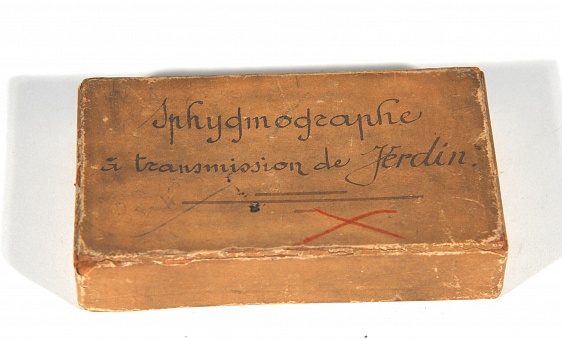 Sphygmographe
à transmission de Verdin.